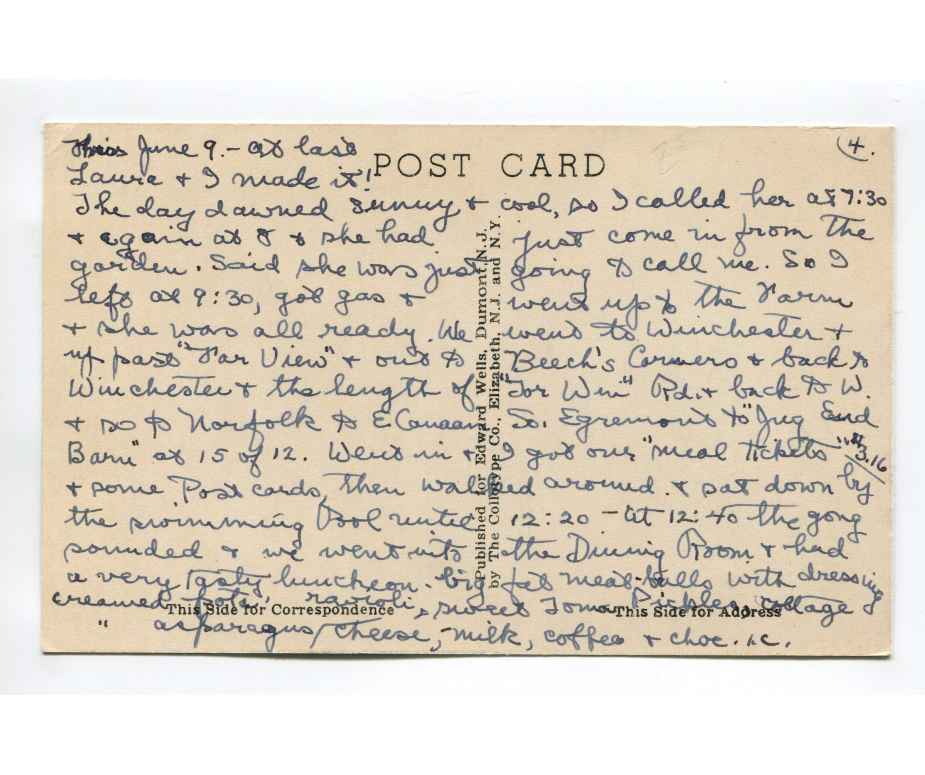 Thurs June 9. - at last
4.
POST CARD
Laura & I made it!
The day dawned sunny & cool, so I called her at 7:30
& again at 8 & she had just come in from the
garden. Said she was just going to call me. So I
left at 9:30, got gas & went up to the Farm
& she was all ready. We went to Winchester &
up past "Far View" & out to Beech's Corners & back to
Winchester & the length of "Tor Win" Rd. & back to W.
& so to Norfolk to E. Canaan So. Egremont to "Jug End
Barn" at 15 of 12. Went in & I got our "meal tickets" 3.16
& some Post cards, then walked around & sat down by
the swimming Pool until 12:20 - at 12:40 the gong
sounded & we went into the Dining Room & had
a very tasty luncheon. big fat meat-balls with dressing
creamed pot., ravioli, sweet Toma Pickles, cottage
" asparagus, cheese, milk, coffee & choc. i.c.
This Side for Correspondence
This Side for Address
Published for Edward Wells, Dumont, N.J.
by The Collotype Co., Elizabeth, N.J. and N.Y.